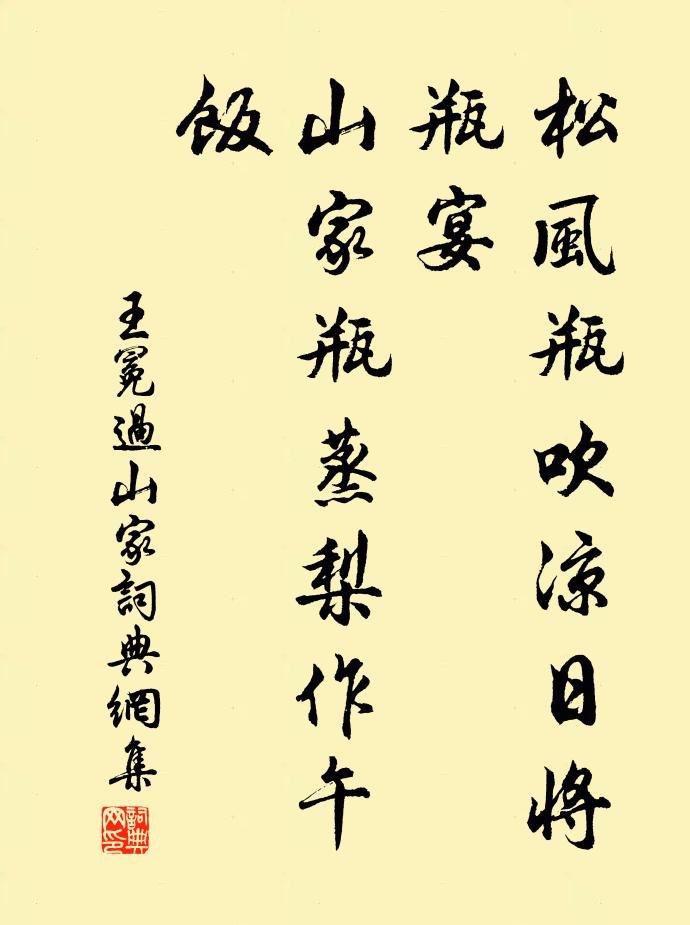 松風瓶吹涼日將
瓶宴
山家瓶蒸梨作午
飯
王冕過山家詞典網集
詞典网印